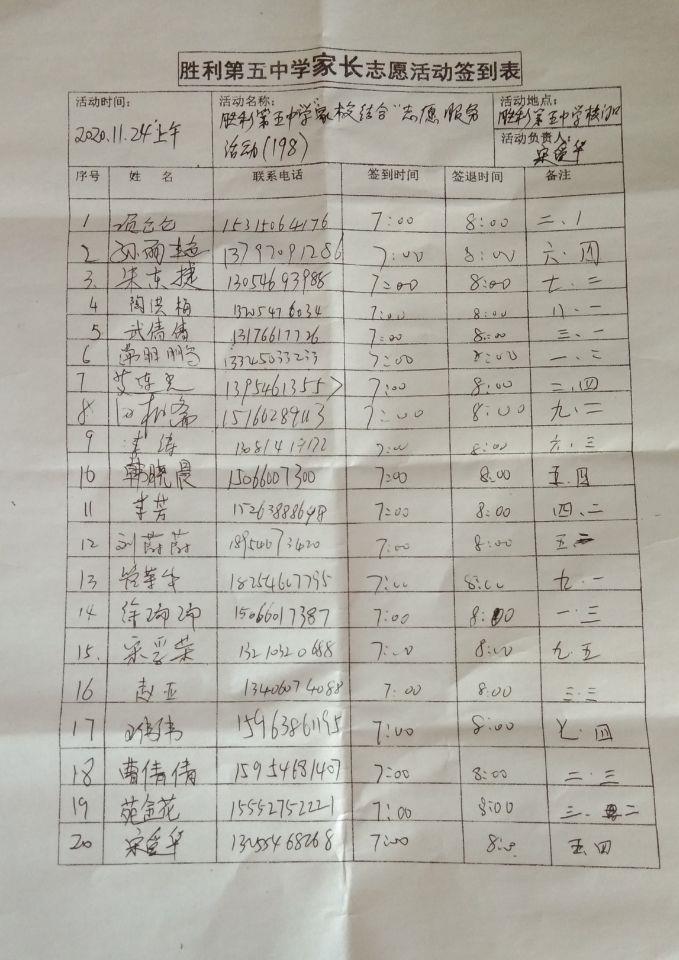 胜利第五中学家长志愿活动签到表
活动时间:
2020.11.24上午
活动名称:
胜利第五中学"家校结合"志愿服务
活动(198)
活动地点:
胜利第五中学校门口
活动负责人:
宋爱华
序号 姓名 联系电话 签到时间 签退时间 备注
1 15315064176 7:00 8:00 二、1
2 13797091286 7:00 8:00 六.四
3. 朱东捷 13054693985 7:00 8:00 七.二
4 陶洪梅 7:00 8:00 八.二
5 武倩倩 13176617726 7:00 8:00 三.一
6 7:00 8:00 一.二
7 7:00 8:00 二.四
8 7:00 8:00 九.二
9 李涛 7:00 8:00 六.三
10 韩晓晨 15066007300 7:00 8:00 五.四
11 李芳 15263888698 7:00 8:00 四.二
12 刘蔚蔚 18954073420 7:00 8:00 五.二
13 18254607795 7:00 8:00 九.一
14 徐瑞瑞 15066017387 7:00 8:00 一.三
15. 宋爱荣 13210320688 7:00 8:00 九.五
16 赵亚 13406074088 7:00 8:00 三.三
17 15963861195 7:00 8:00 七.四
18 曹倩倩 15954681407 7:00 8:00 二.三
19 苑金花 15552752221 7:00 8:00 三.二
20 宋爱华 13255468268 7:00 8:00 五.四